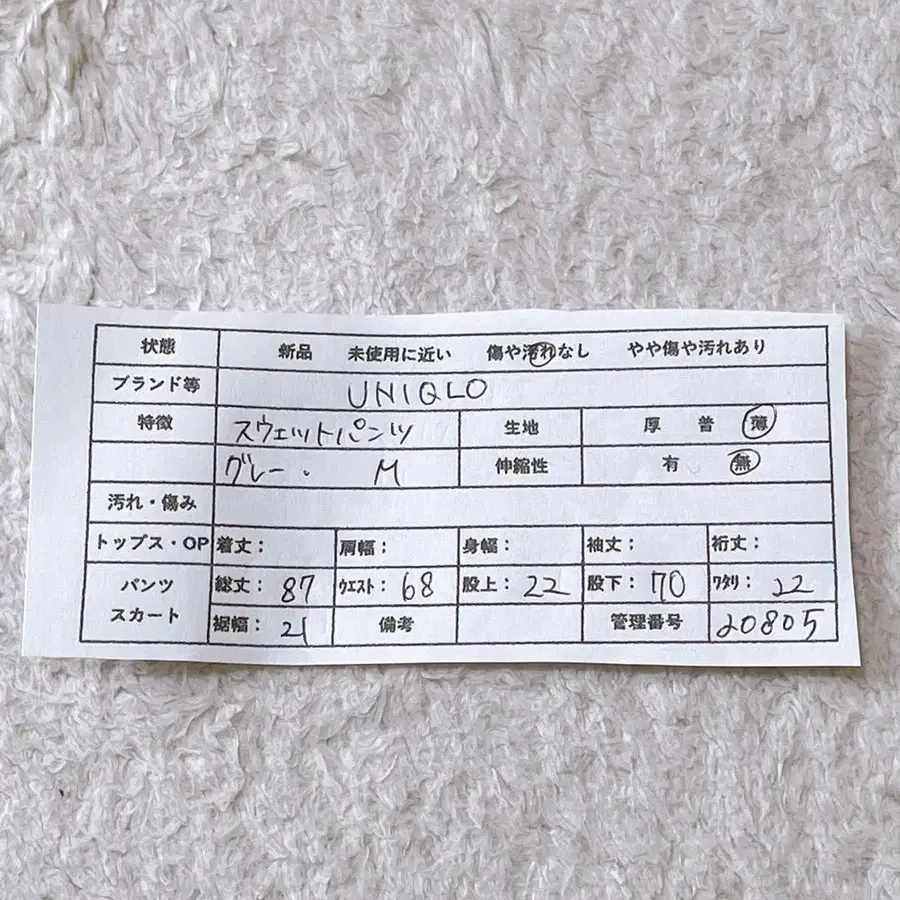 状態 新品 未使用に近い 傷や汚れなし やや傷や汚れあり
ブランド等 UNIQLO
特徴 スウェットパンツ 生地 厚 普 薄
グレー・ M 伸縮性 有 無
汚れ・傷み
トップス・OP 着丈： 肩幅： 身幅： 袖丈： 裄丈：
パンツ 総丈：87 ウエスト：68 股上：22 股下：70 ワタリ：22
スカート 裾幅：21 備考 管理番号 20805